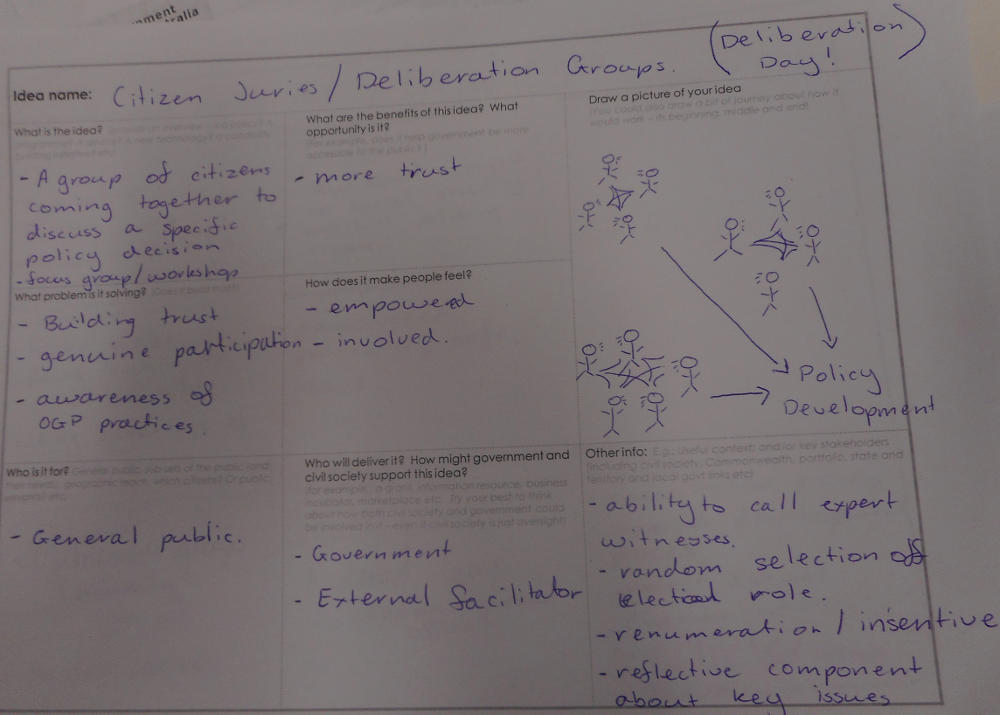 nment
tralia
Idea name: Citizen Juries / Deliberation Groups. (Deliberation
Day!)
What is the idea?
- A group of citizens
coming together to
discuss a specific
policy decision
- focus group/workshop
What are the benefits of this idea? What
opportunity is it?
(for example, does it help government be more
accessible to the public?)
- more trust
Draw a picture of your idea
(You could also draw a bit of journey about how it
would work – its beginning, middle and end)
Policy
Development
What problem is it solving?
- Building trust
- genuine participation
- awareness of
OGP practices.
How does it make people feel?
- empowered
- involved.
Who is it for?
- General public.
Who will deliver it? How might government and
civil society support this idea?
(for example, a grant, information resource, business
incubator, marketplace etc. Try your best to think
about how both civil society and government could
be involved in it – even if civil society is just oversight)
- Government
- External facilitator
Other info: E.g.: Useful context; and/or key stakeholders
(including civil society, Commonwealth, portfolio, state and
territory and local govt links etc)
- ability to call expert
witnesses.
- random selection off
role.
- renumeration / insentive
- reflective component
about key issues